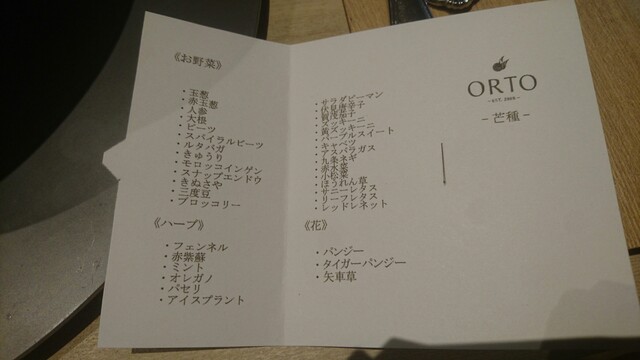 《お野菜》
・玉葱
・赤玉葱
・人参
・大根
・ビーツ
・スパイラルビーツ
・ルタバガ
・きゅうり
・モロッコインゲン
・スナップエンドウ
・きぬさや
・三度豆
・ブロッコリー
・サラダピーマン
・伏見唐辛子
・賀茂茄子
・ズッキーニ
・黄ズッキーニ
・パープルスイート
・キャベツ
・アスパラガス
・九条ネギ
・赤水菜
・小松菜
・ほうれん草
・サニーレタス
・リーフレタス
・レッドレネット
《ハーブ》
・フェンネル
・赤紫蘇
・ミント
・オレガノ
・パセリ
・アイスプラント
《花》
・パンジー
・タイガーパンジー
・矢車草
ORTO
- 芒種 -